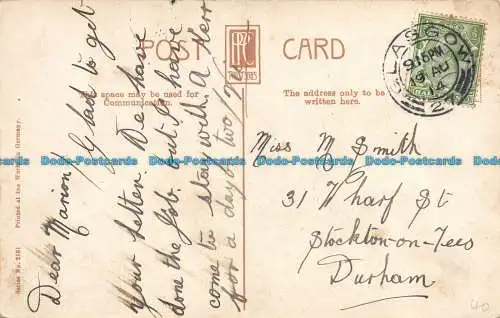 POST CARD
This space may be used for
Communication.
The address only to be
written here.
Dear Marion I glad to get
your letter. We have
done the job. but I have
come to stay with A Kerr
for a day or two
Miss M Smith
31 Wharf St
Stockton-on-Tees
Durham
GLASGOW
9 AU
14
Series No. 2151
Printed at the
Germany.
40